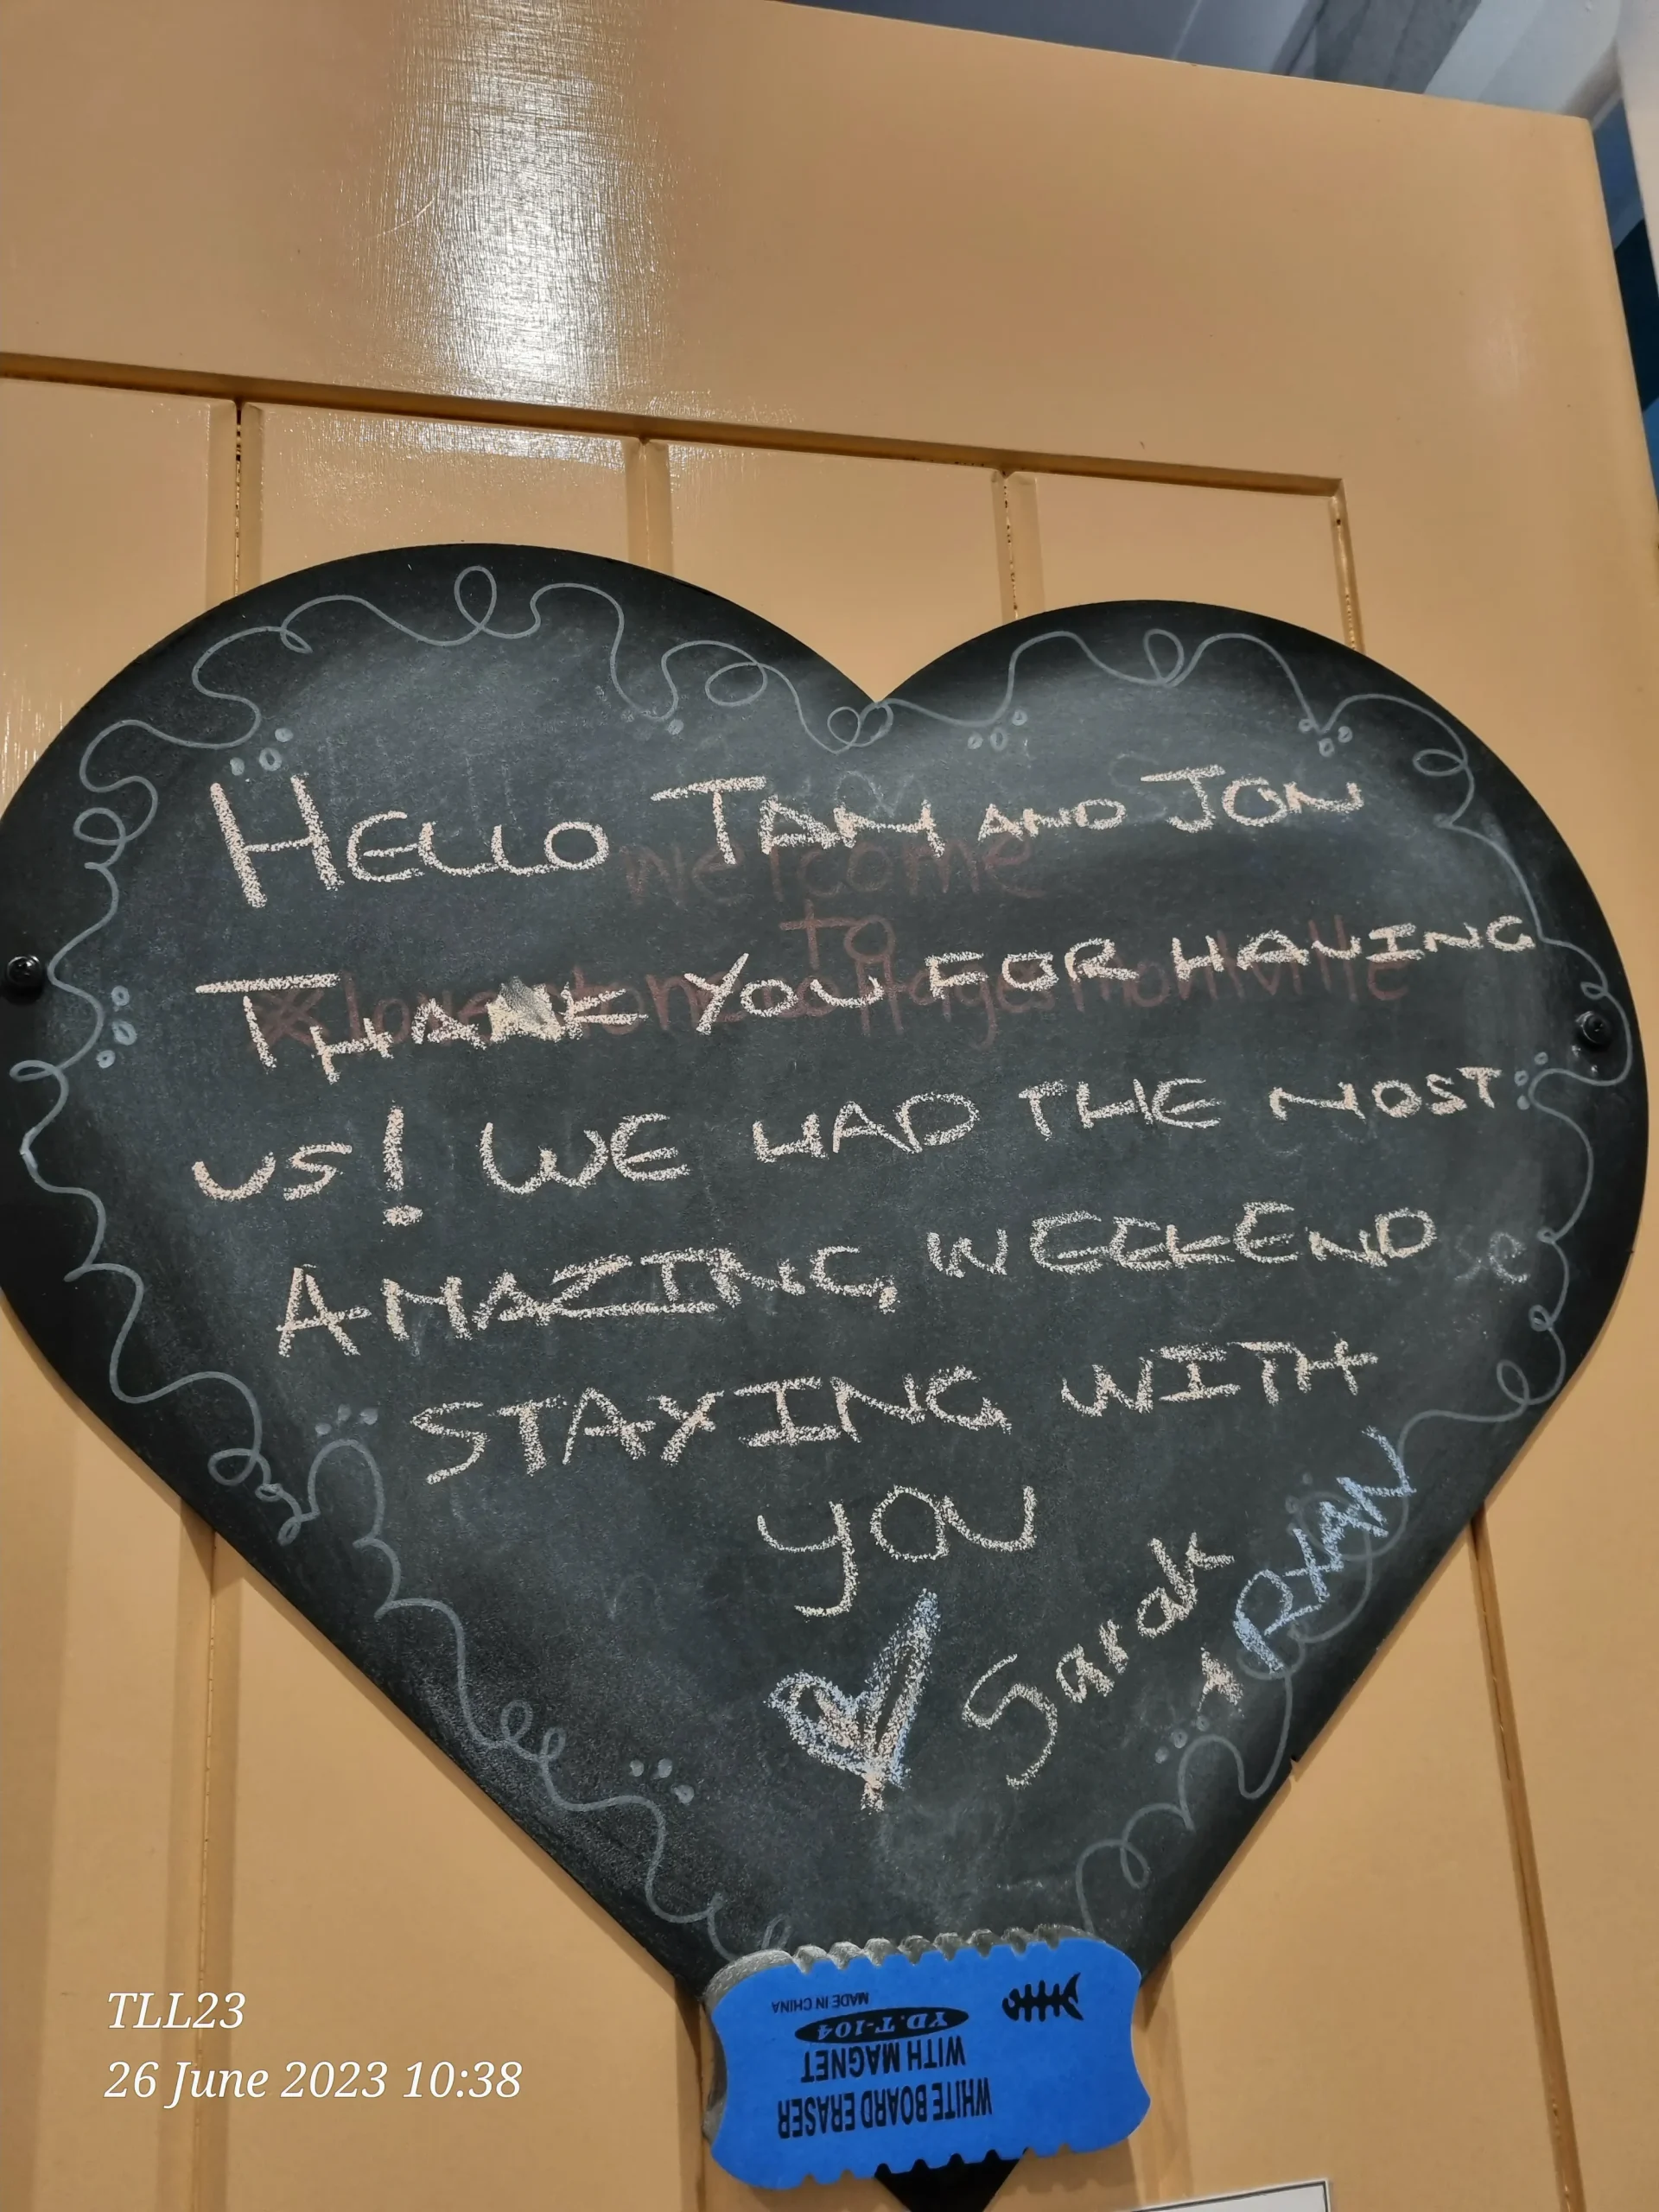 HELLO TAM AND JON
welcome
to
THANK YOU FOR HAVING
US! WE HAD THE MOST
AMAZING WEEKEND
se
STAYING WITH
YOU
Sarah
ARYAN
MADE IN CHINA
YD.T-104
WITH MAGNET
WHITE BOARD ERASER
TLL23
26 June 2023 10:38